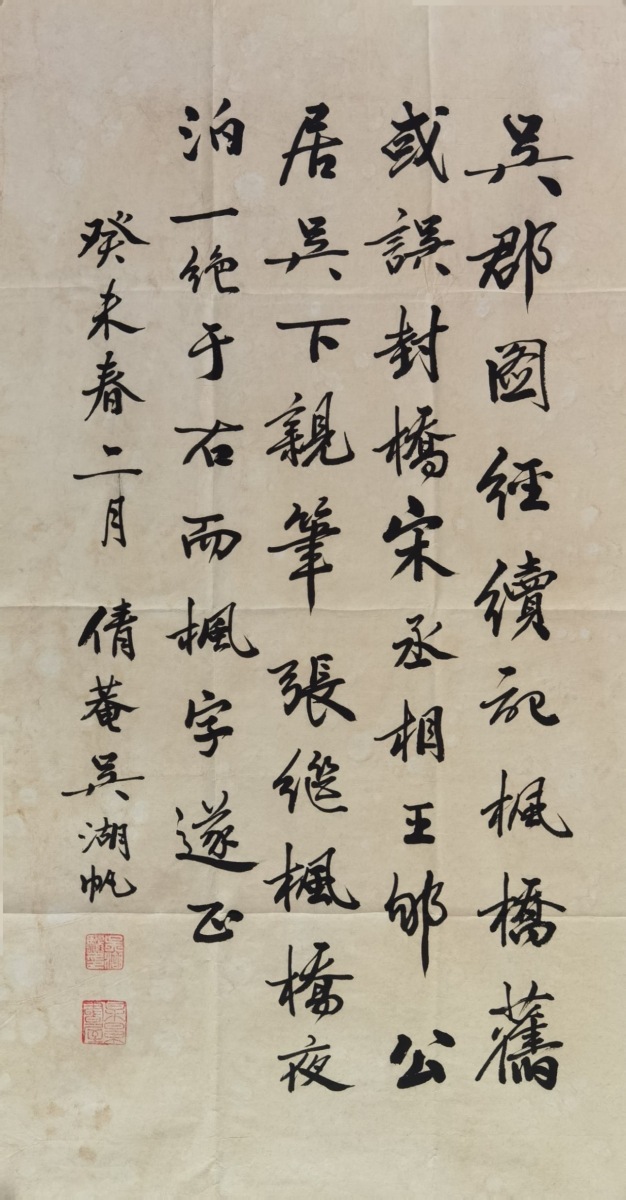 吳郡圖經續記楓橋舊
或誤封橋宋丞相王郇公
居吳下親筆張繼楓橋夜
泊一绝于右而楓字遂正
癸未春二月 倩菴吳湖帆